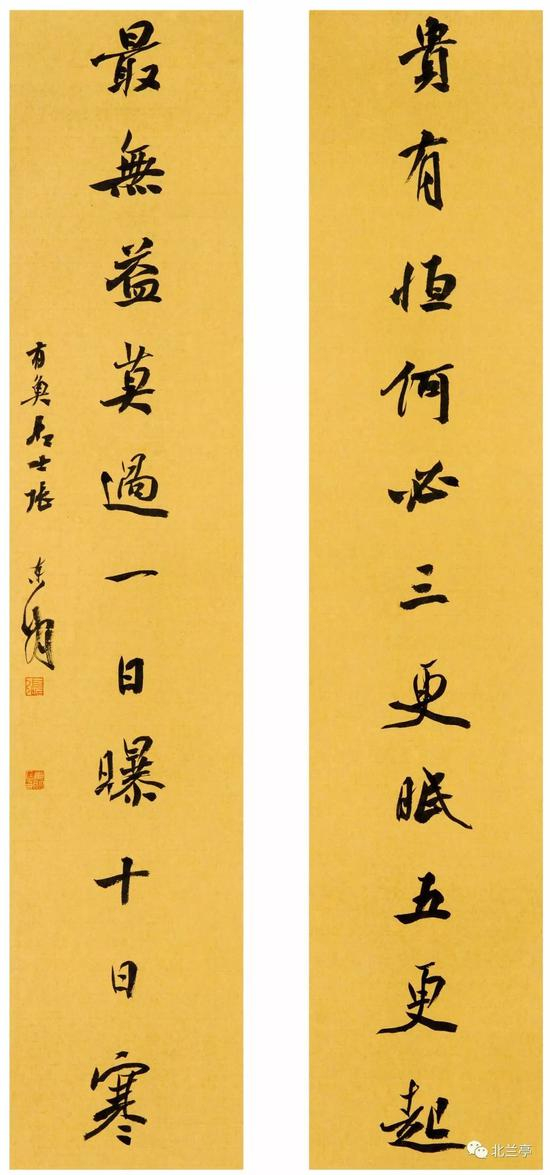 貴有恒何必三更眠五更起
最無益莫過一日曝十日寒
有奐居士張東明
北兰亭